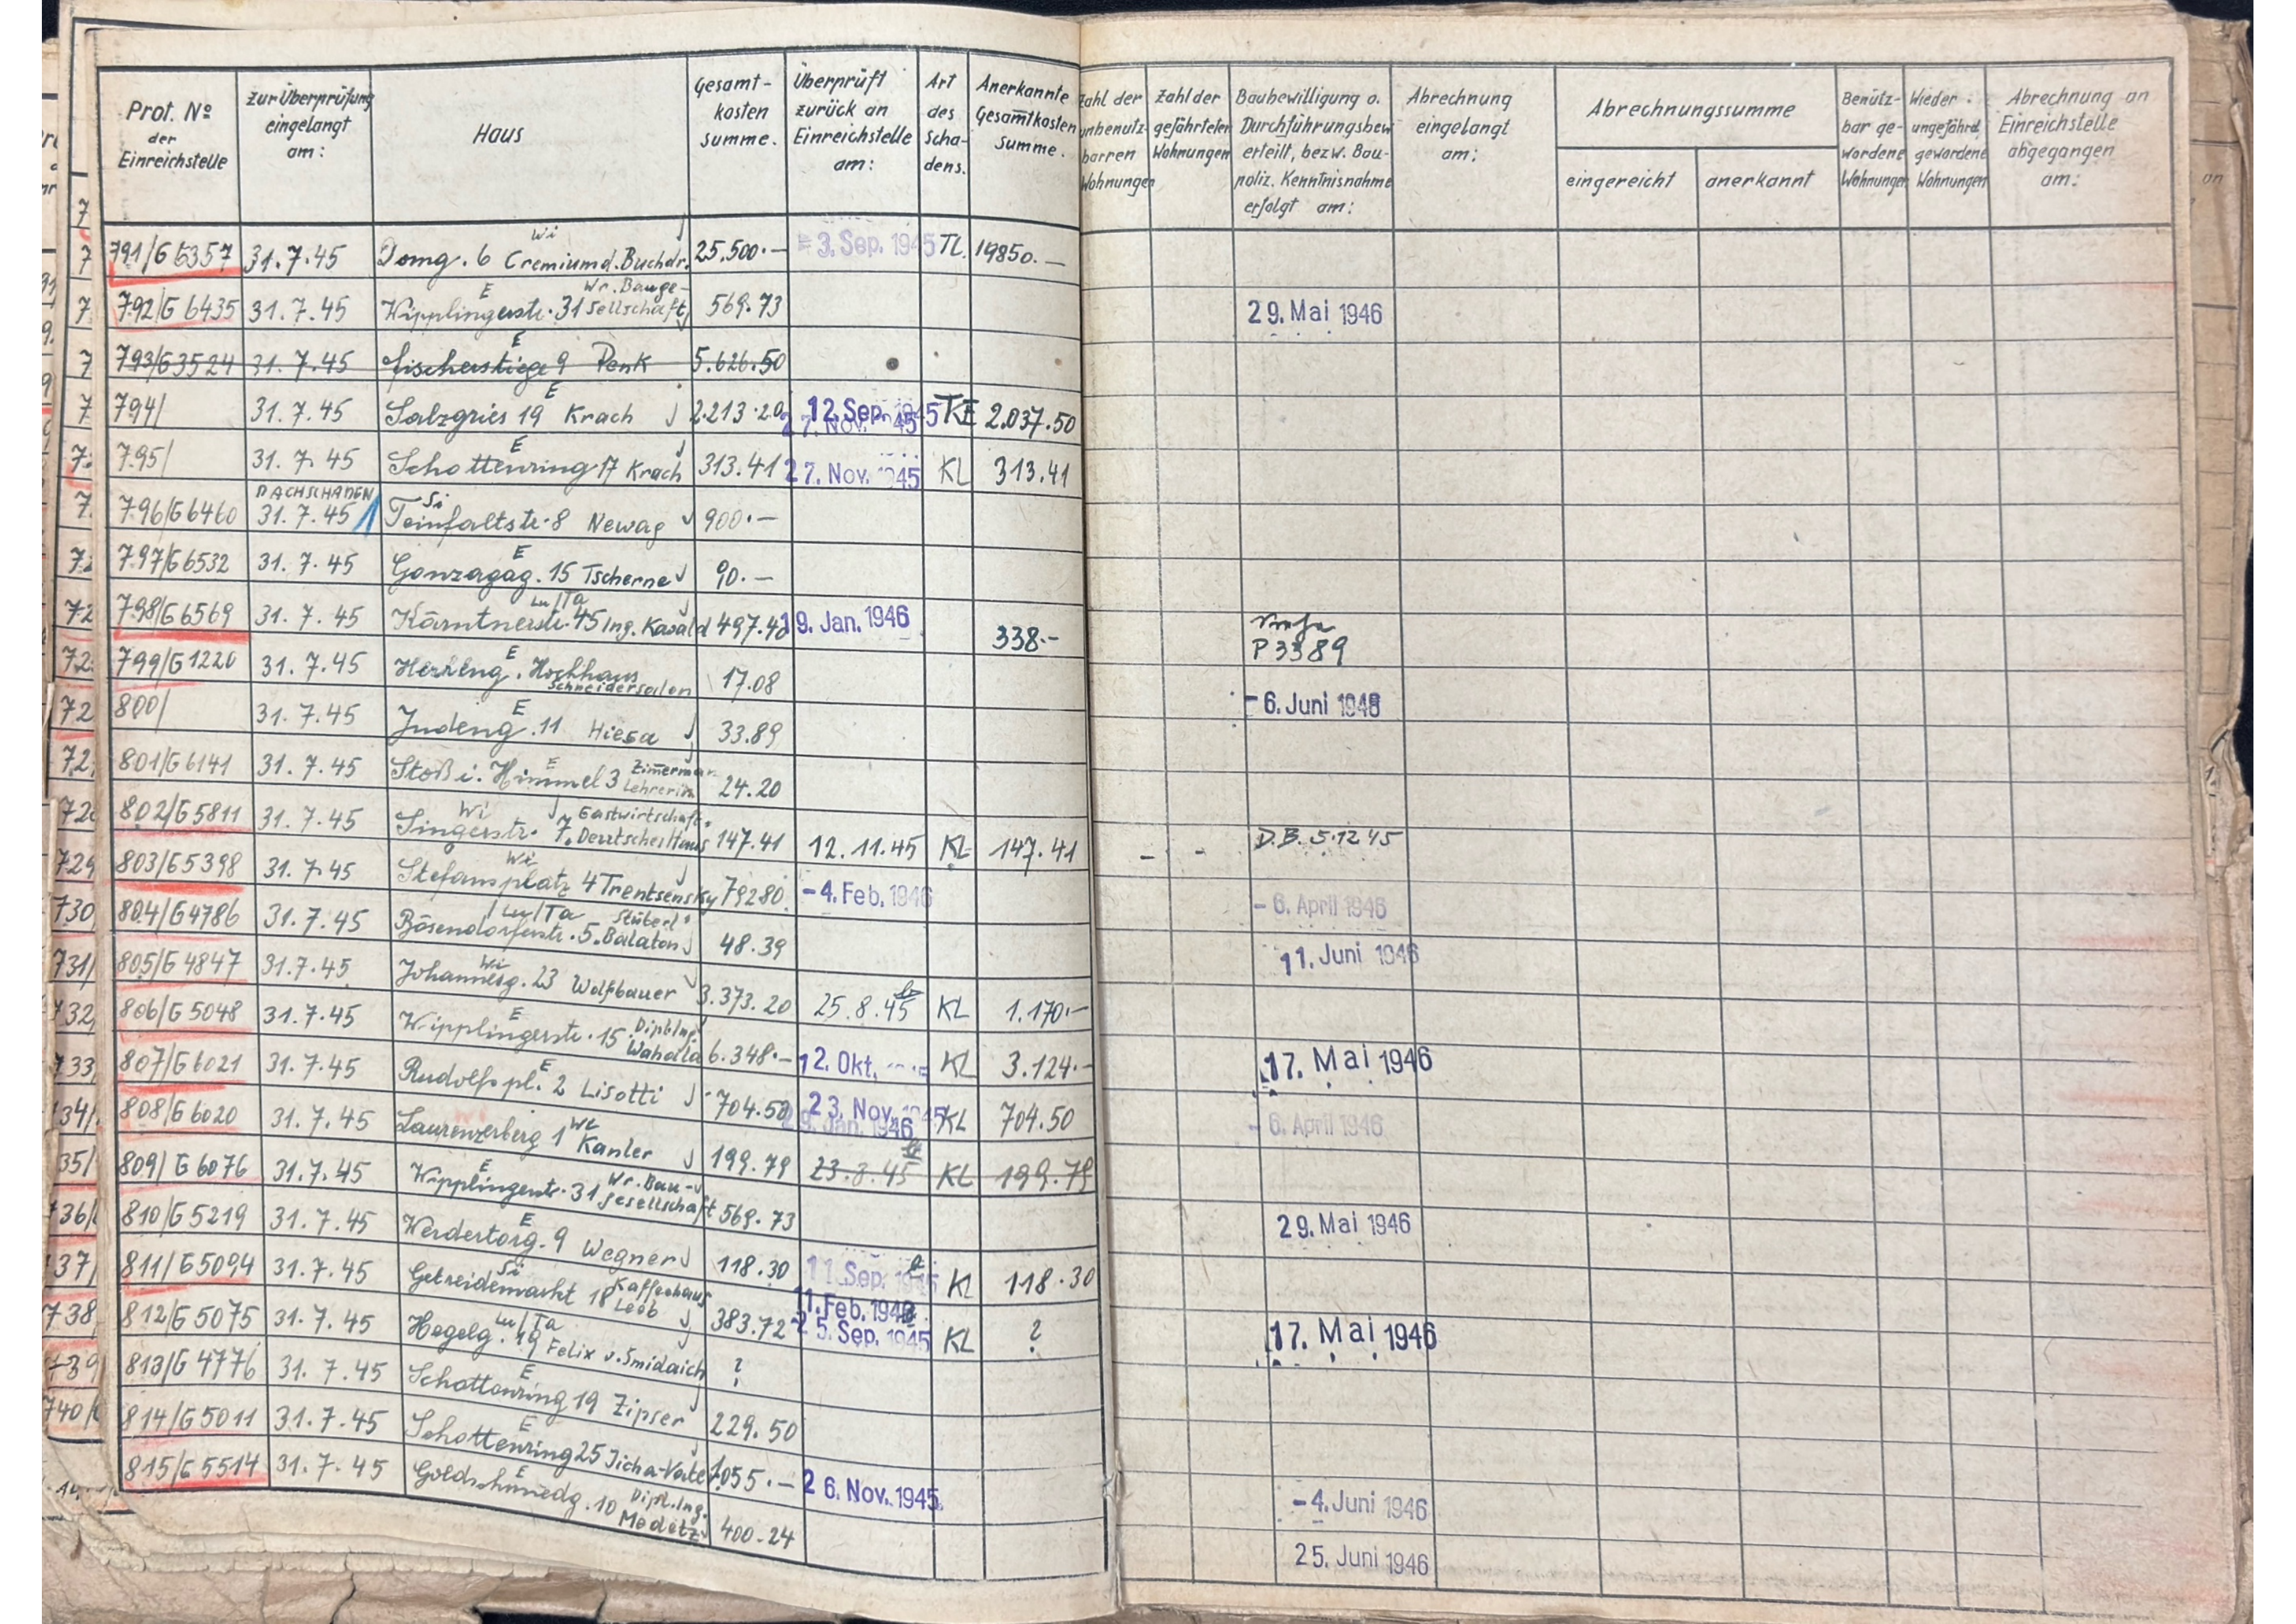 Prot. No der Einreichstelle | zur Überprüfung eingelangt am: | Haus | Gesamt-kosten summe. | Überprüft zurück an Einreichstelle am: | Art des Scha-dens. | Anerkannte Gesamtkosten Summe. | Zahl der unbenutz-barren Wohnungen | Zahl der gefährteten Wohnungen | Baubewilligung o. Durchführungsbew erteilt, bezw. Bau-poliz. Kenntnisnahme erfolgt am: | Abrechnung eingelangt am: | Abrechnungssumme eingereicht | anerkannt | Benütz-bar ge-wordene Wohnungen | Wieder ungefährd. gewordene Wohnungen | Abrechnung an Einreichstelle abgegangen am:
791/G 6357 | 31.7.45 | Domg. 6 Wi Cremium d. Buchdr. | 25.500.— | 3. Sep. 1945 | TL | 19850.—
792/G 6435 | 31.7.45 | Wipplingerstr. 31 E Wr. Bauge-sellschaft | 569.73 | 29. Mai 1946
793/G3524 | 31.7.45 | Fischerstiege 9 E Penk | 5.626.50
794/ | 31.7.45 | Salzgries 19 E Krach | 2.213.20 | 12. Sep. 1945 27. Nov. 45 | TKE | 2.037.50
795/ | 31.7.45 | Schottenring 17 E Krach | 313.41 | 27. Nov. 1945 | KL | 313.41
796/G6460 | DACHSCHADEN 31.7.45 | Teinfaltstr. 8 Si Newag | 900.—
797/G6532 | 31.7.45 | Gonzagag. 15 E Tscherne | 90.—
798/G6569 | 31.7.45 | Kärntnerstr. 45 Lu/Ta Ing. Kavald | 497.40 | 19. Jan. 1946 | 338.— | P 3389
799/G1220 | 31.7.45 | Herreng. E Hochhaus Schneidersalon | 17.08
800/ | 31.7.45 | Judeng. 11 E Hiesa | 33.89 | - 6. Juni 1946
801/G6141 | 31.7.45 | Stoß i. Himmel 3 E Zimmerman Lehrerin | 24.20
802/G5811 | 31.7.45 | Singerstr. 7 Wi Gastwirtschaft Deutsches Haus | 147.41 | 12.11.45 | KL | 147.41 | - | - | D.B. 5.12 45
803/G5398 | 31.7.45 | Stefansplatz 4 Wi Trentsensky | 79280 | - 4. Feb. 1946 | - 6. April 1946
804/G4786 | 31.7.45 | Bösendorferstr. 5 Lu/Ta Stüberl Balaton | 48.39 | 11. Juni 1946
805/G4847 | 31.7.45 | Johannesg. 23 Wi Wolfbauer | 3.373.20 | 25.8.45 | KL | 1.170.—
806/G5048 | 31.7.45 | Wipplingerstr. 15 E Dipl.Ing. Wahalla | 6.348.— | 12. Okt. | KL | 3.124.— | 17. Mai 1946
807/G6021 | 31.7.45 | Rudolfspl. 2 E Lisotti | 704.50 | 23. Nov. 1945 29. Jan. 1946 | KL | 704.50 | - 6. April 1946
808/G6020 | 31.7.45 | Laurenzerberg 1 We Kanler | 199.79 | 23.8.45 | KL | 199.79
809/G6076 | 31.7.45 | Wipplingerstr. 31 E Wr. Bau-gesellschaft | 569.73 | 29. Mai 1946
810/G5219 | 31.7.45 | Werdertorg. 9 E Wegner | 118.30 | 11. Sep. 1945 | KL | 118.30
811/G5094 | 31.7.45 | Getreidemarkt 18 Si Kaffeehaus Leeb | 383.72 | 11. Feb. 1946 25. Sep. 1945 | KL | ? | 17. Mai 1946
812/G5075 | 31.7.45 | Hegelg. 19 Lu/Ta Felix v. Smidaich | ?
813/G4776 | 31.7.45 | Schottenring 19 E Zipser | 229.50
814/G5011 | 31.7.45 | Schottenring 25 E | 1.055.— | 26. Nov. 1945 | - 4. Juni 1946
815/G5514 | 31.7.45 | Goldschmiedg. 10 E Dipl.Ing. Medetz | 400.24 | 25. Juni 1946